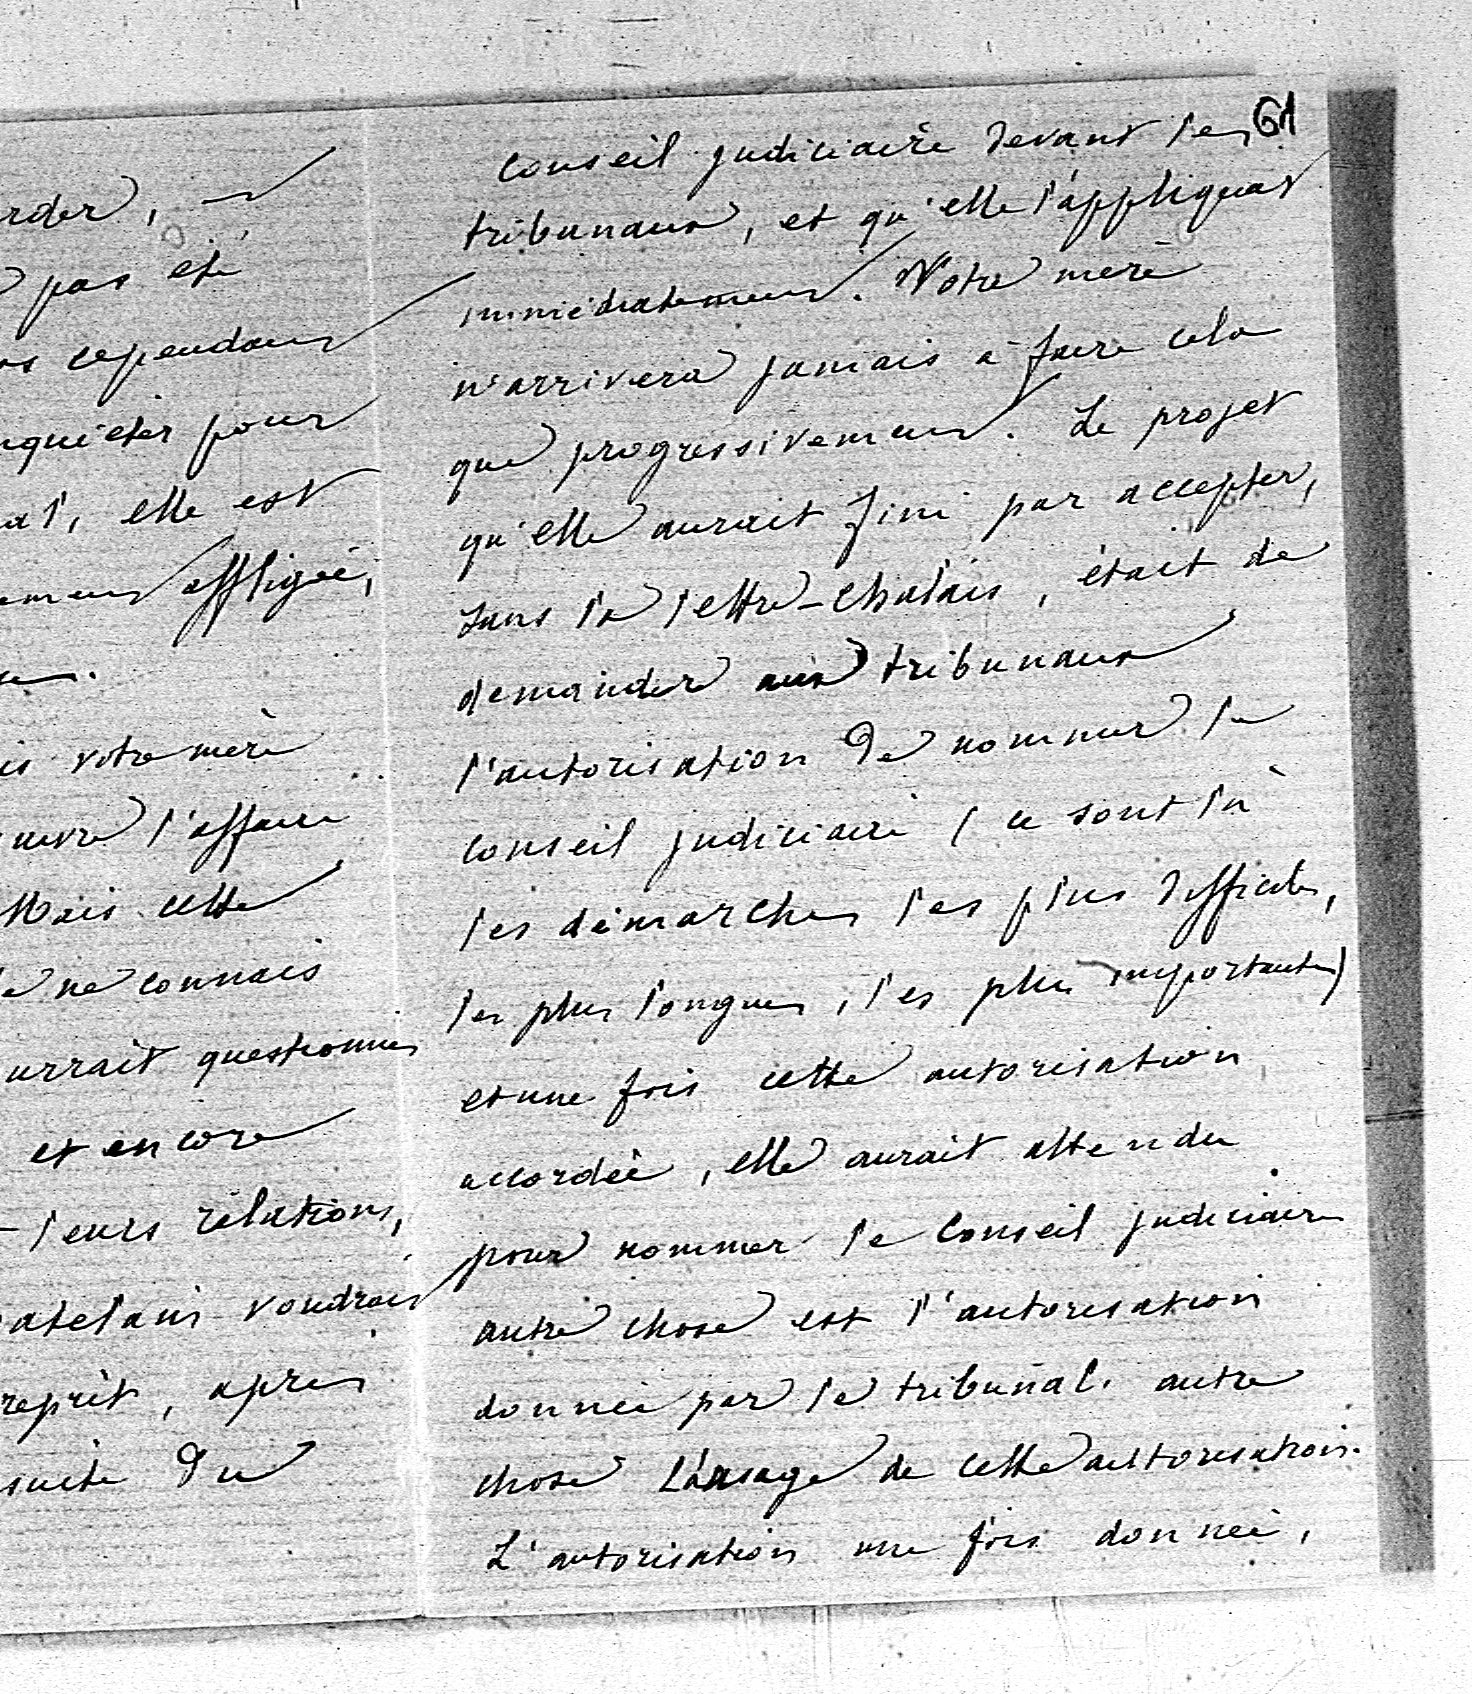 rder,
pas été
cependant
nquiéter pour
al, elle est
ement affligée,
votre mère
uivre l'affaire
Mais cette
ne connais
urrait questionner
et encore
leurs relations,
voudrais
reprît, après
suite du
61
conseil judiciaire devant les
tribunaux, et qu'elle l'appliquât
immédiatement. Votre mère
n'arrivera jamais à faire cela
que progressivement. Le projet
qu'elle aurait fini par accepter,
sans la lettre-Chalais, était de
demander aux tribunaux
l'autorisation de nommer le
conseil judiciaire (ce sont là
les démarches les plus difficiles,
les plus longues, les plus importantes)
et une fois cette autorisation
accordée, elle aurait attendu
pour nommer le Conseil judiciaire
autre chose est l'autorisation
donnée par le tribunal. autre
chose l'usage de cette autorisation.
L'autorisation une fois donnée,